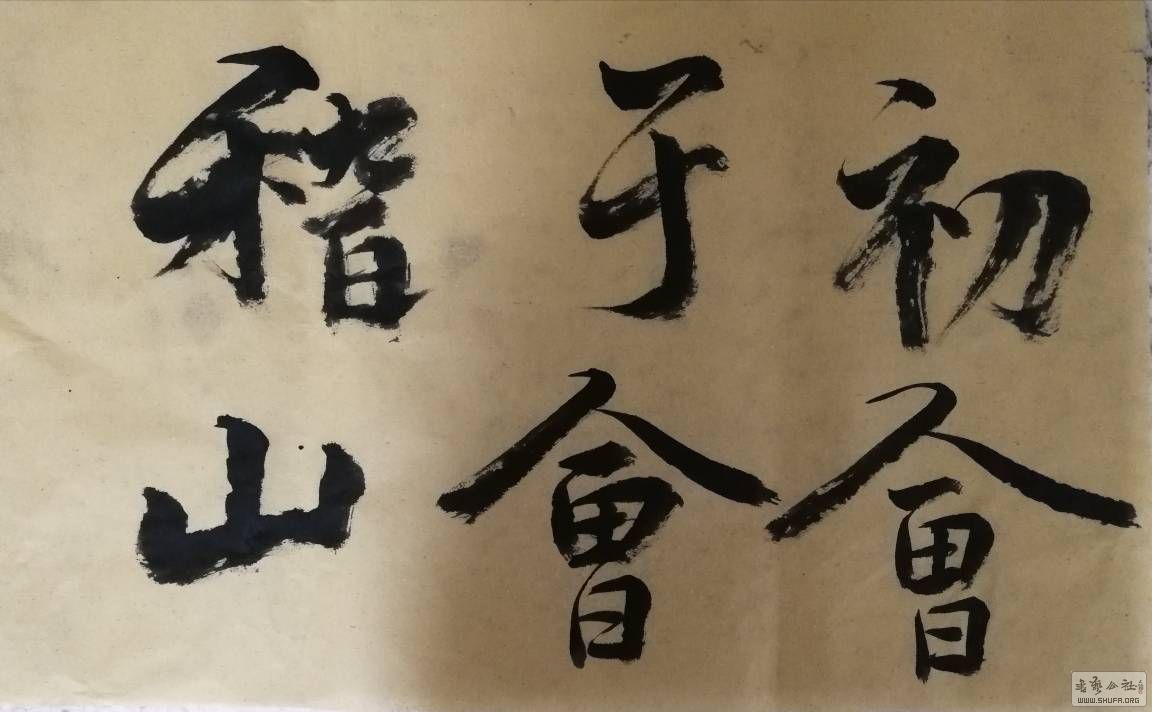 初會
于會
稽山
書藝公社
WWW.SHUFA.ORG